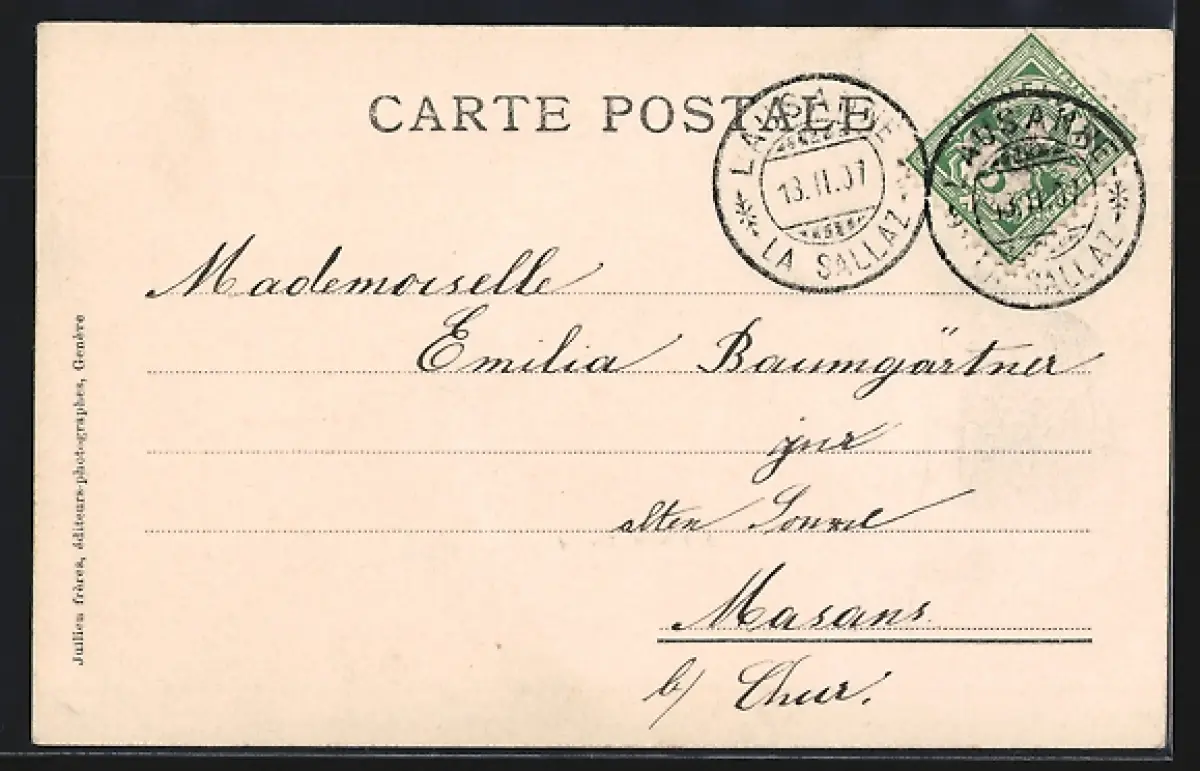 CARTE POSTALE
LAUSANNE
13.II.07
LA SALLAZ
LAUSANNE
13.II.07
LA SALLAZ
5
Mademoiselle
Emilia Baumgärtner
zur
alten Sonne
Masans
b/ Chur.
Jullien frères, éditeurs-photographes, Genève